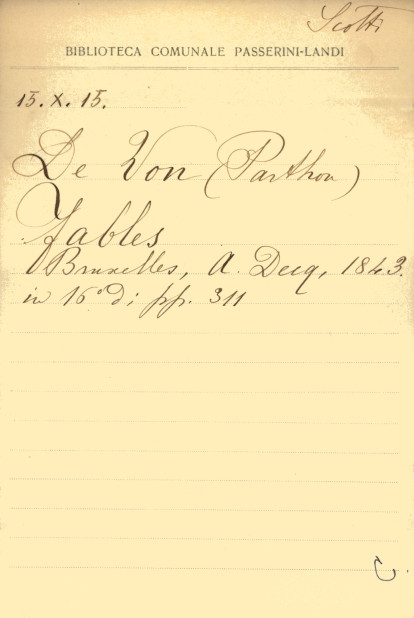 Scotti
BIBLIOTECA COMUNALE PASSERINI-LANDI
15. X. 15.
De Von (Parthon)
Fables
Bruxelles, A. Decq, 1843.
in 16° di pp. 311